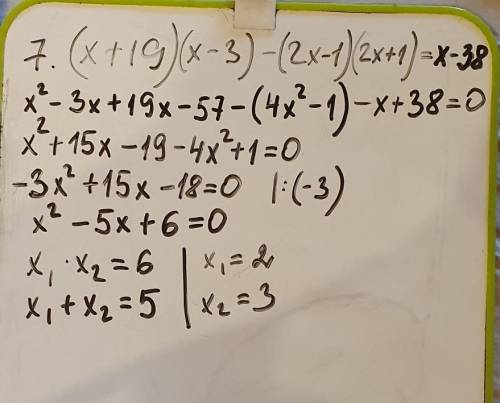 7. (x+19)(x-3)-(2x-1)(2x+1)=x-38
x²-3x+19x-57-(4x²-1)-x+38=0
x²+15x-19-4x²+1=0
-3x²+15x-18=0 |:(-3)
x²-5x+6=0
x₁·x₂=6 | x₁=2
x₁+x₂=5 | x₂=3